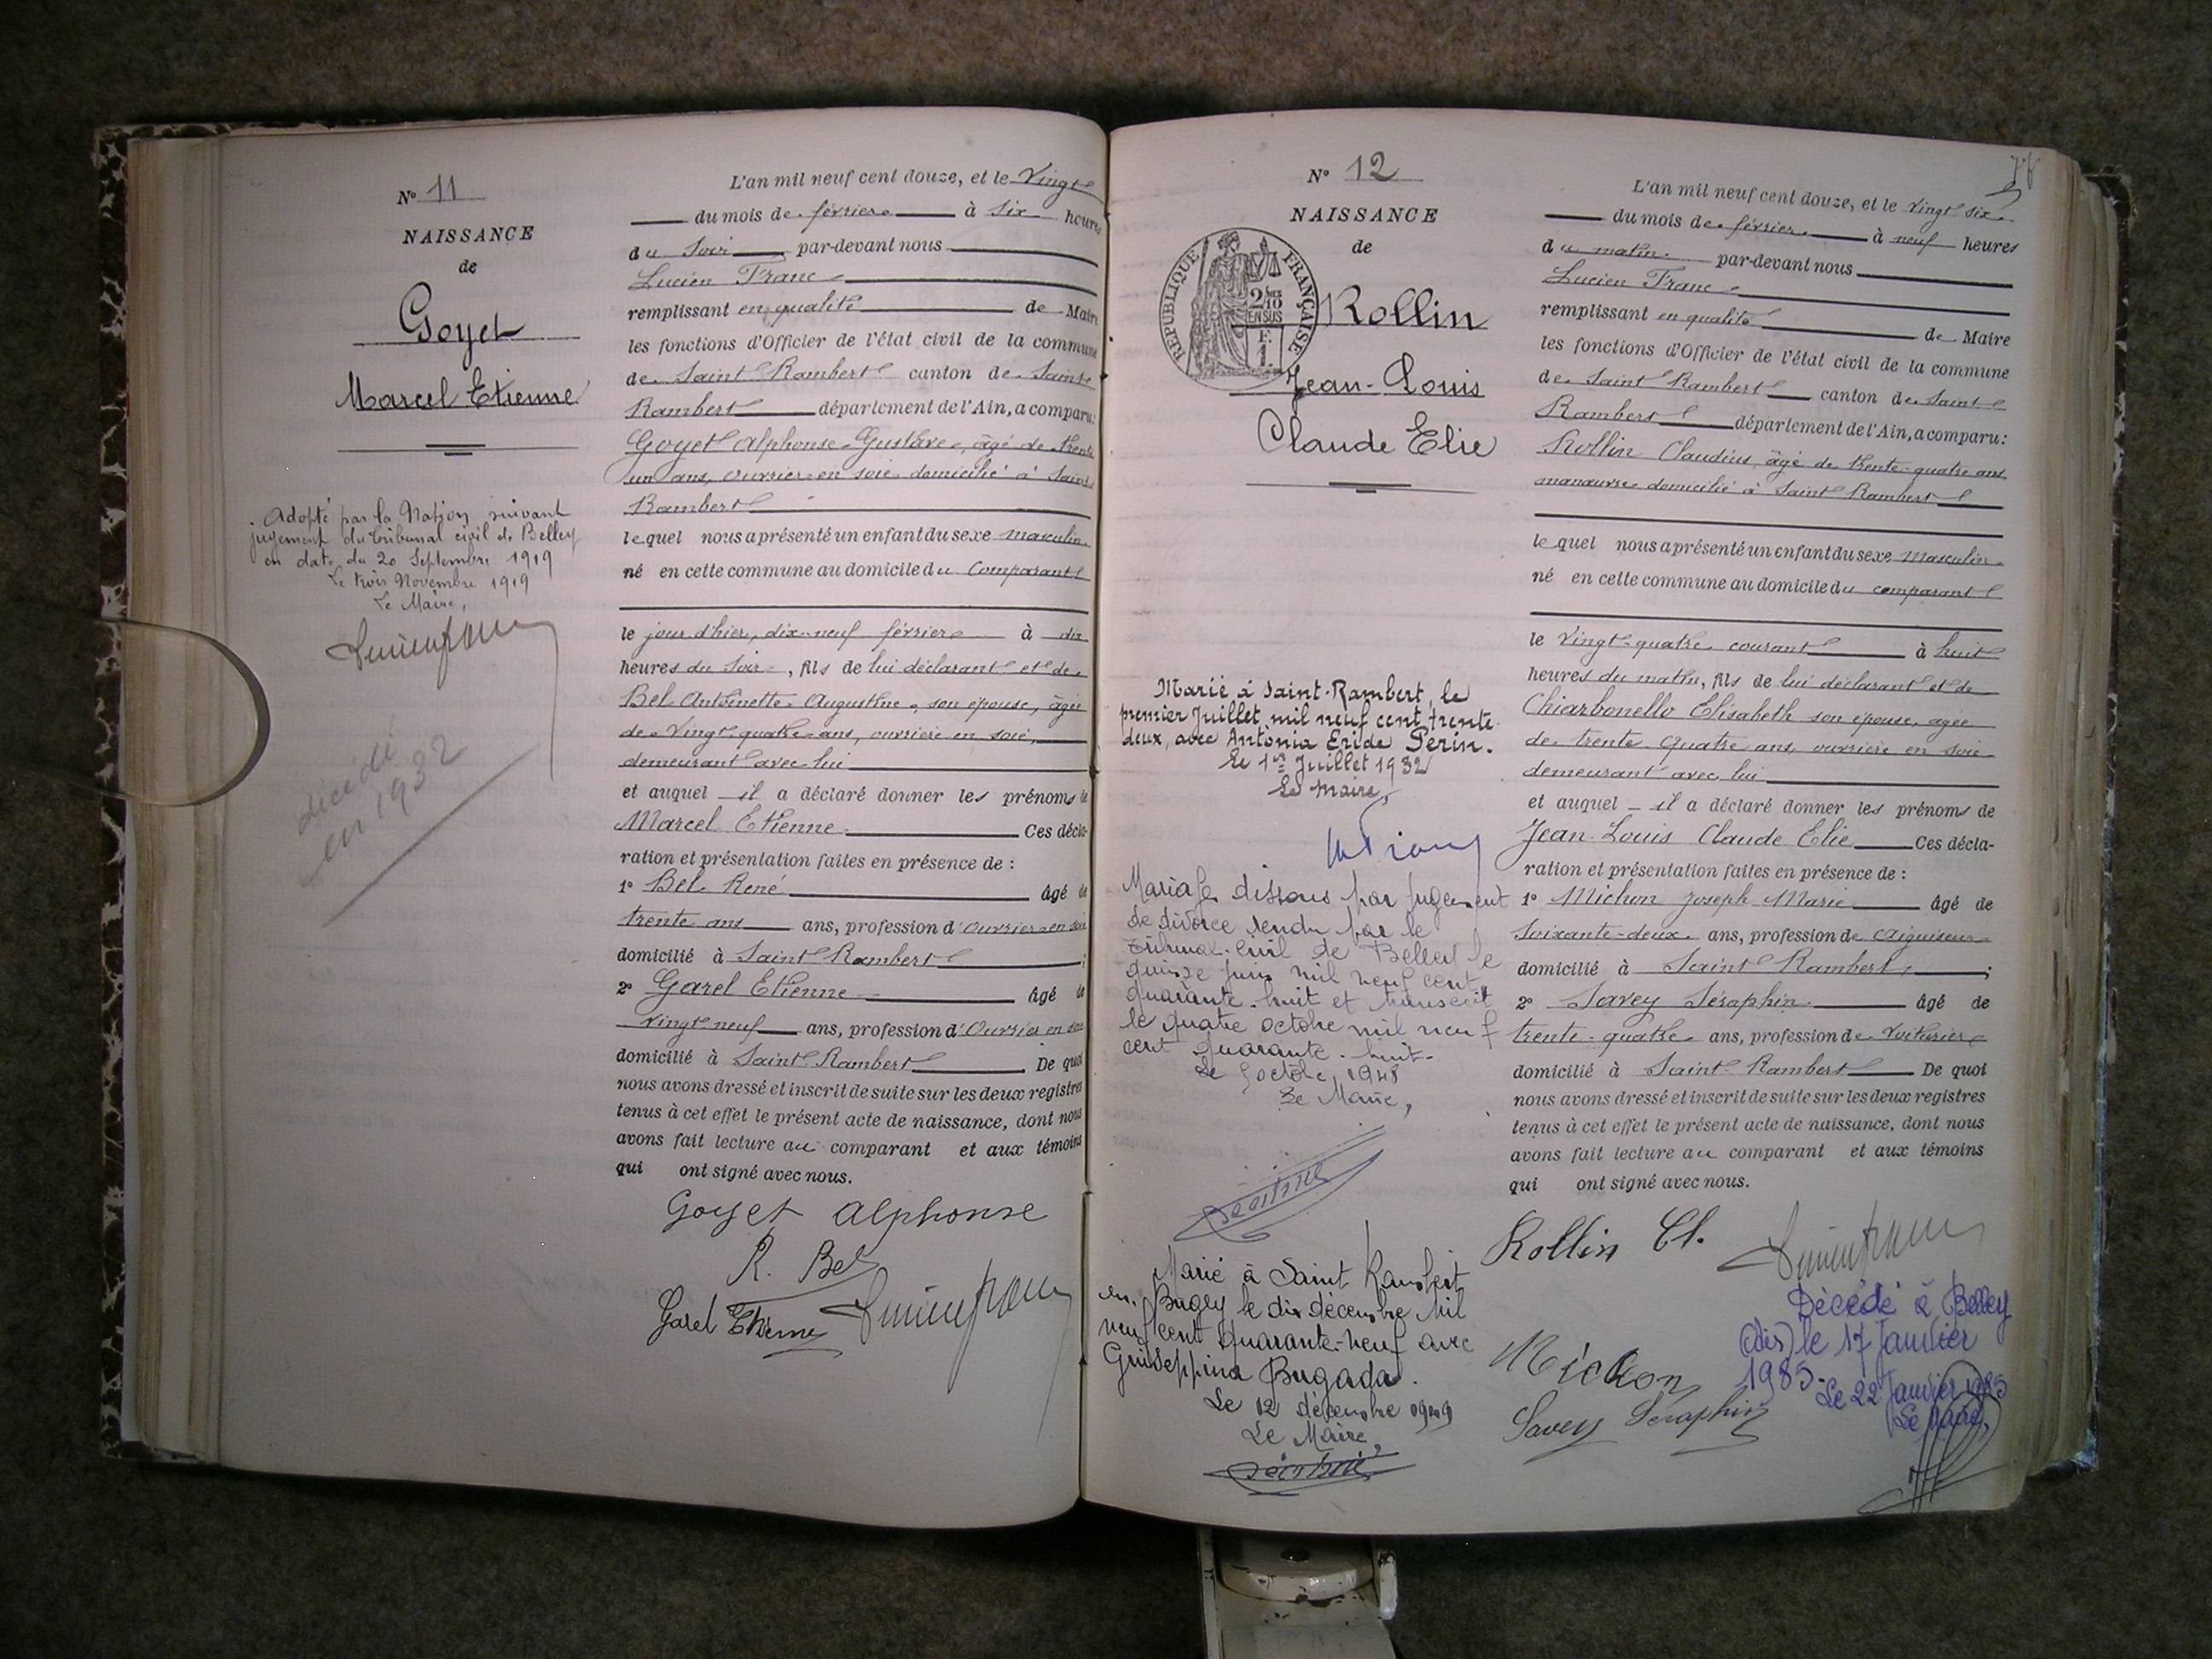 N° 11
NAISSANCE
de
Goyet
Marcel Etienne
Adopté par la Nation suivant
jugement du tribunal civil de Belley
en date du 20 Septembre 1919
Le trois Novembre 1919
Le Maire,
décédé
en 1932
L'an mil neuf cent douze, et le vingt
du mois de février à six heures
du soir par-devant nous
Lucien Franc
remplissant en qualité de Maire
les fonctions d'Officier de l'état civil de la commune
de Saint Rambert canton de Saint
Rambert département de l'Ain, a comparu:
Goyet Alphonse Gustave, âgé de trente
un ans, ouvrier en soie domicilié à Saint
Rambert
lequel nous a présenté un enfant du sexe masculin
né en cette commune au domicile du comparant
le jour d'hier, dix-neuf février à dix
heures du soir, fils de lui déclarant et de
Bel Antoinette Augustine, son épouse, âgée
de vingt-quatre ans, ouvrière en soie,
demeurant avec lui
et auquel il a déclaré donner les prénoms de
Marcel Etienne Ces décla-
ration et présentation faites en présence de :
1° Bel René âgé de
trente ans ans, profession d'ouvrier en soie
domicilié à Saint Rambert ;
2° Garel Etienne âgé de
vingt neuf ans, profession d'ouvrier en soie
domicilié à Saint Rambert De quoi
nous avons dressé et inscrit de suite sur les deux registres
tenus à cet effet le présent acte de naissance, dont nous
avons fait lecture au comparant et aux témoins
qui ont signé avec nous.
Goyet alphonse
R. Bel
Garel Etienne
N° 12
NAISSANCE
de
RÉPUBLIQUE FRANÇAISE
2/10 EN SUS
F. 1.
Rollin
Jean-Louis
Claude Elie
Marié à Saint-Rambert, le
premier Juillet mil neuf cent trente-
deux, avec Antonia Eride Perin.
Le 1er Juillet 1932
Le Maire,
Mariage dissous par jugement
de divorce rendu par le
Tribunal civil de Belley le
quinze juin mil neuf cent
quarante-huit et transcrit
le quatre octobre mil neuf
cent quarante-huit.
Le octobre 1948
Le Maire,
Marié à Saint Rambert
en Bugey le dix décembre mil
neuf cent quarante-neuf avec
Guiseppina Bugada.
Le 12 décembre 1949
Le Maire,
L'an mil neuf cent douze, et le vingt six
du mois de février à neuf heures
du matin par-devant nous
Lucien Franc
remplissant en qualité de Maire
les fonctions d'Officier de l'état civil de la commune
de Saint Rambert canton de Saint
Rambert département de l'Ain, a comparu:
Rollin Claudius, âgé de trente-quatre ans
manœuvre domicilié à Saint Rambert
lequel nous a présenté un enfant du sexe masculin
né en cette commune au domicile du comparant
le vingt-quatre courant à huit
heures du matin, fils de lui déclarant et de
Chiarbonello Elisabeth son épouse, âgée
de trente quatre ans, ouvrière en soie
demeurant avec lui
et auquel il a déclaré donner les prénoms de
Jean-Louis Claude Elie Ces décla-
ration et présentation faites en présence de :
1° Michon Joseph Marie âgé de
soixante-deux ans, profession de aiguiseur
domicilié à Saint Rambert ;
2° Savey Séraphin âgé de
trente-quatre ans, profession de voiturier
domicilié à Saint Rambert De quoi
nous avons dressé et inscrit de suite sur les deux registres
tenus à cet effet le présent acte de naissance, dont nous
avons fait lecture au comparant et aux témoins
qui ont signé avec nous.
Rollin Cl.
Michon
Savey Séraphin
Décédé à Belley
(Ain) le 17 Janvier
1985.
Le 22 Janvier 1985
Le Maire,